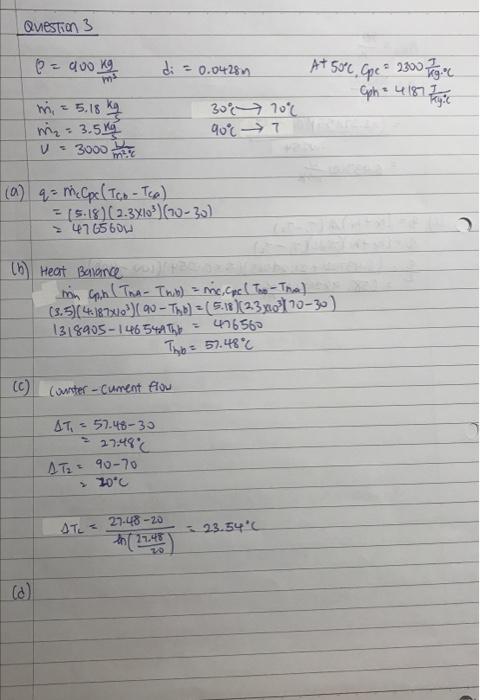 Question 3
ρ = 900 kg/m³ di = 0.0428m At 50°C, Cpc = 2300 J/kg.°C
Cph = 4187 J/kg.°C
ṁ₁ = 5.18 kg/s 30°C → 70°C
ṁ₂ = 3.5 kg/s 90°C → T
U = 3000 W/m².°C
(a) q = ṁcCpc(Tcb - Tca)
= (5.18)(2.3x10³)(70-30)
= 476560W
(b) Heat Balance
ṁh Cph(Tha - Thb) = ṁc,Cpc(
(3.5)(4.187x10³)(90 - Thb) = (5.18)(2.3x10³)(70-30)
1318905-14654.5Thb = 476560
Thb = 57.48°C
(c) Counter-current flow
ΔT₁ = 57.48-30
= 27.48°C
ΔT₂ = 90-70
= 20°C
ΔTL = 27.48-20 / ln(27.48/20) = 23.54°C
(d)